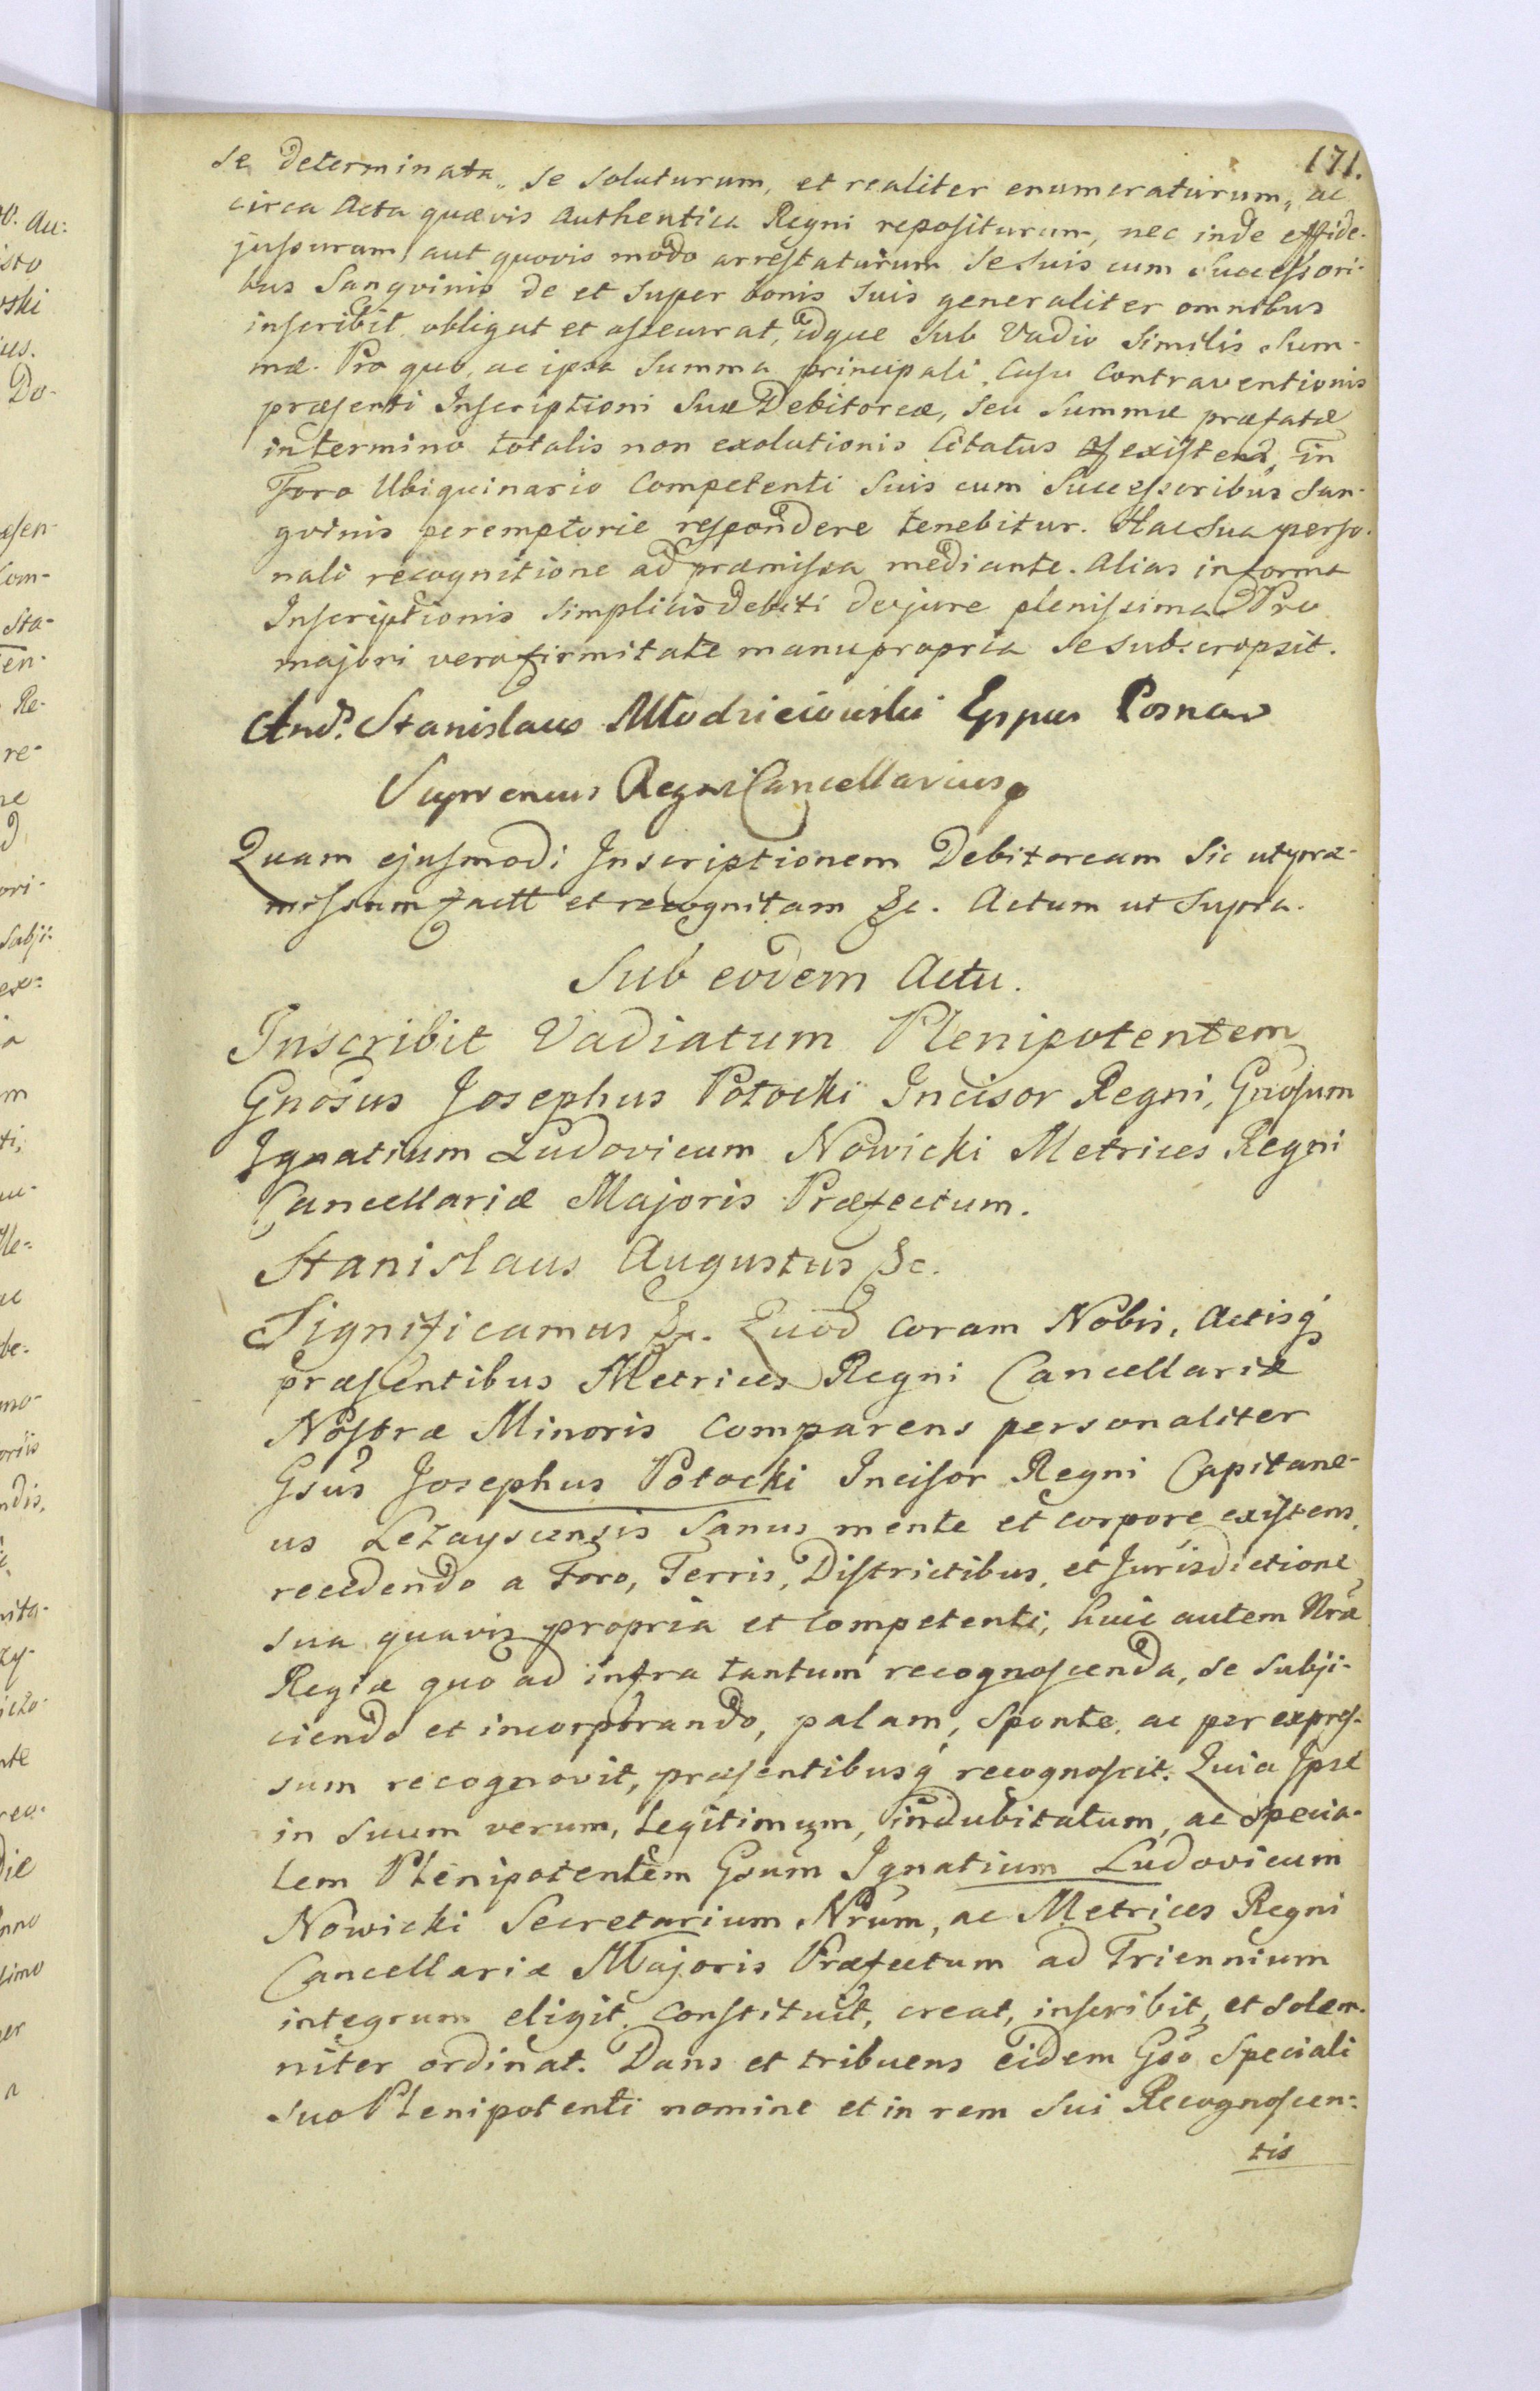 171.
se determinata, se soluturum, et realiter enumeraturum, ac
circa Acta quævis Authentica Regni repositurum, nec inde effide-
jussuram aut quovis modo arrestaturum Se Suis cum Successori-
bus Sangvinis de et super bonis suis generaliter omnibus
inscribit obligat et assecurat, idque sub Vadio similis Sum-
mæ. Pro quo, ac ipsa Summa principali, Casu Contraventionis
præsenti Inscriptioni Suæ Debitoreæ, seu Summæ præfatæ
in termino totalis non exolutionis Citatus existens, in
Foro Ubiquinario Competenti Suis cum Successoribus San-
gvinis peremptorie respondere tenebitur. Hac Sua perso-
nali recognitione ad præmissa mediante. Alias in forma
Inscriptionis Simplicis debiti de jure plenissima Pro
majori vero firmitate manu propria se subscripsit.
And. Stanislaus Młodzieiowski Eppus Posnan
Supremus Regni Cancellarius
Quam ejusmodi Inscriptionem Debitoream Sic ut præ-
missum factt et recognitam &c. Actum ut Supra.
Sub eodem Actu.
Inscribit Vadiatum Plenipotentem
Gnosus Josephus Potocki Incisor Regni, Gnosum
Ignatium Ludovicum Nowicki Metrices Regni
Cancellariæ Majoris Præfectum.
Stanislaus Augustus &c.
Significamus &c. Quod coram Nobis, Actisq
præsentibus Metrices Regni Cancellariæ
Nostræ Minoris Comparens personaliter
Gsus Josephus Potocki Incisor Regni Capitane-
us Leżayscensis Sanus mente et corpore existens,
recedendo a Foro, Terris, Districtibus, et Jurisdictione
sua quavis propria et Competenti, huic autem Nræ
Regiæ quo ad infra tantum recognoscenda, se subji-
ciendo et incorporando, palam, Sponte, ac per expres-
sum recognovit, præsentibusq recognoscit. Quia Ipse
in Suum verum, Legitimum, indubitatum, ac Specia-
lem Plenipotentem Gsum Ignatium Ludovicum
Nowicki Secretarium Nrum, ac Metrices Regni
Cancellariæ Majoris Præfectum ad Triennium
integrum eligit, Constituit, creat, inscribit, et solem-
niter ordinat. Dans et tribuens eidem Gso Speciali
suo Plenipotenti nomine et in rem Sui Recognoscen-
tis